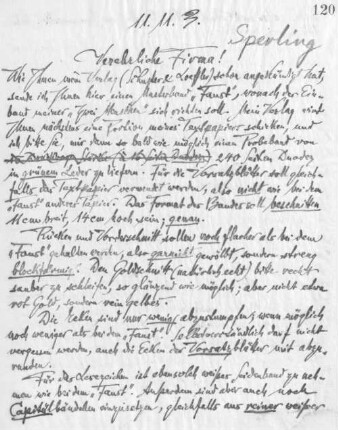 120
11.11.3.
Sperling
Verehrliche Firma!
Wie Ihnen mein Verlag (Schuster & Loeffler) schon angekündigt hat,
sende ich Ihnen hier einen Musterband „Faust", wonach der Ein-
band meiner „Zwei Menschen" sich richten soll. Mein Verlag wird
Ihnen nächstens eine Portion meines Textpapiers schicken, und
ich bitte Sie, mir dann so bald wie möglich einen Probeband von
240 Seiten
in grünem Leder zu liefern. Für die Vorsatzblätter soll gleich-
falls das Textpapier verwendet werden, also nicht wie bei dem
„Faust" andres Papier. Das Format des Bandes soll beschnitten
11 cm breit, 17 cm hoch sein; genau.
Rücken und Vorderschnitt sollen noch flacher als bei dem
„Faust" gehalten werden, also garnicht gewölbt, sondern streng
blockförmig. Den Goldschnitt (natürlich echt) bitte recht
sauber zu schleifen, so glänzend wie möglich; aber nicht etwa
rot Gold, sondern rein gelbes.
Die Ecken sind nur wenig abzustumpfen, wenn möglich
noch weniger als bei dem „Faust". Selbstverständlich darf nicht
vergessen werden, auch die Ecken der Vorsatzblätter mit abzu-
runden.
Für das Lesezeichen ist ebensolch weißes Seidenband zu neh-
men wie bei dem „Faust". Außerdem sind aber auch noch
Capitälbändchen einzusetzen, gleichfalls aus reiner weißer